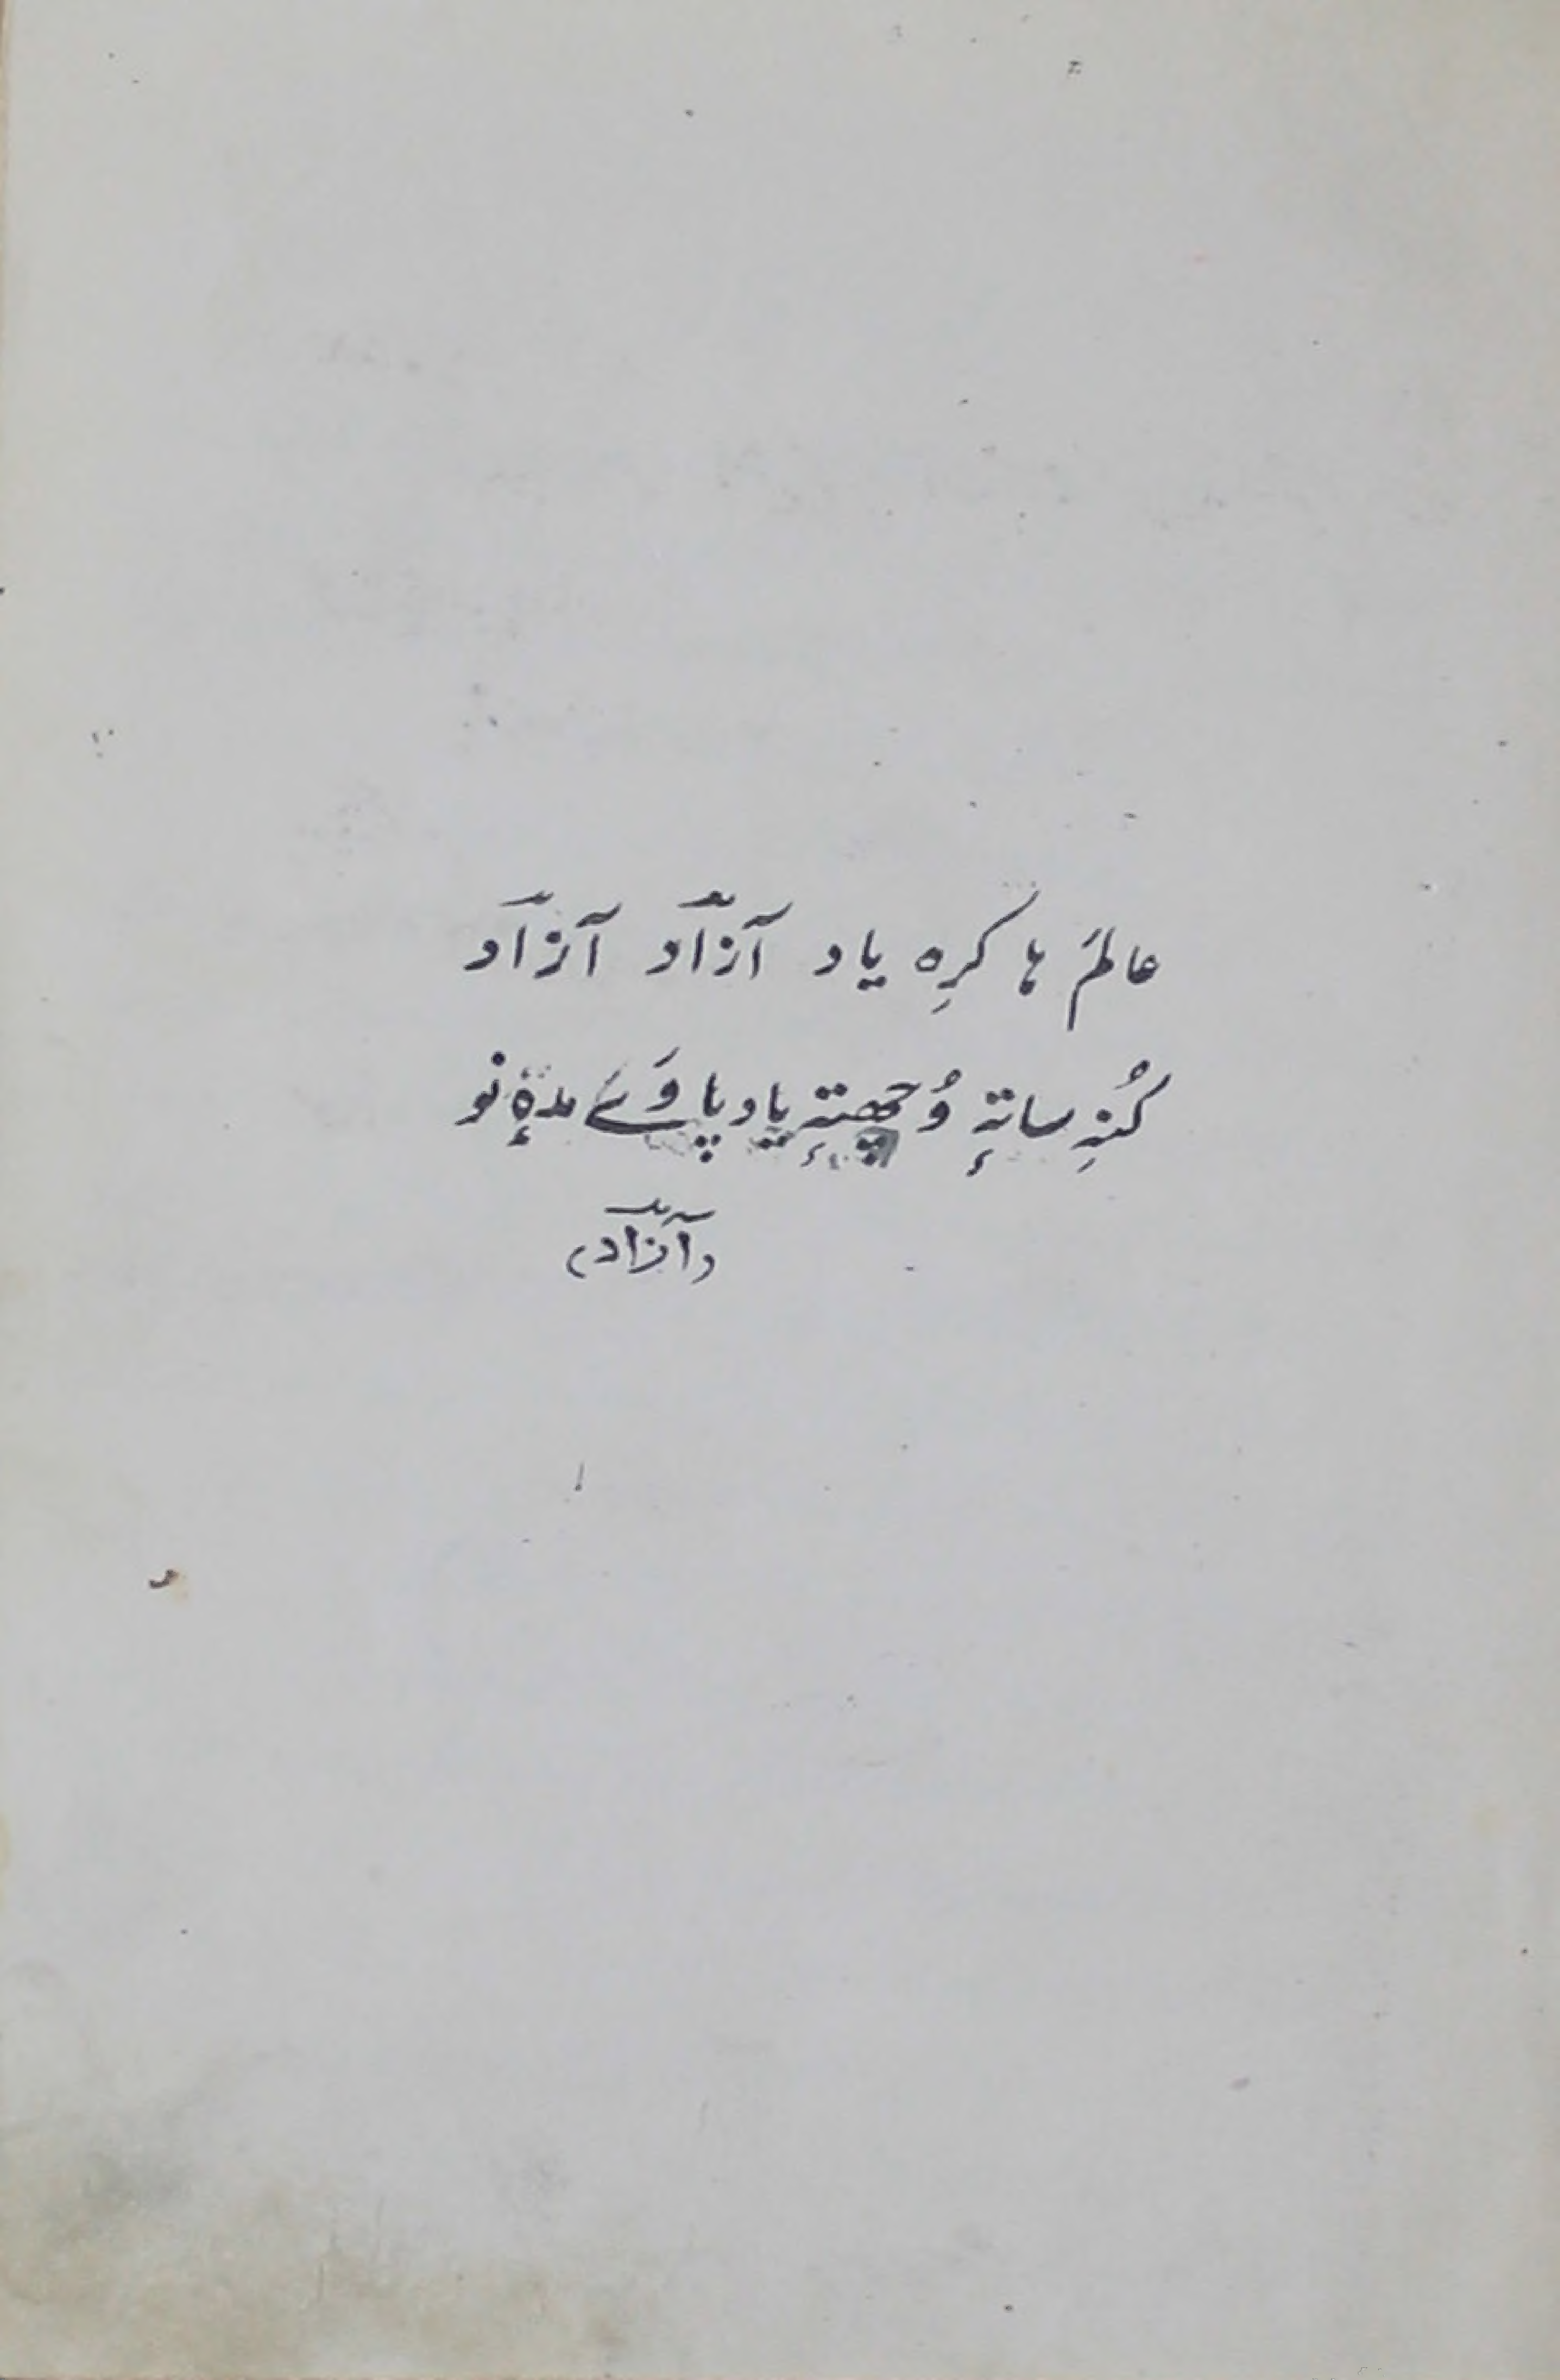 عالمَ ہا کرِہ یاد آزآد آزآد
کُنہِ ساتہٕ وُچھتہٕ یاد پاوَے مدہٕ نو
(آزآد)